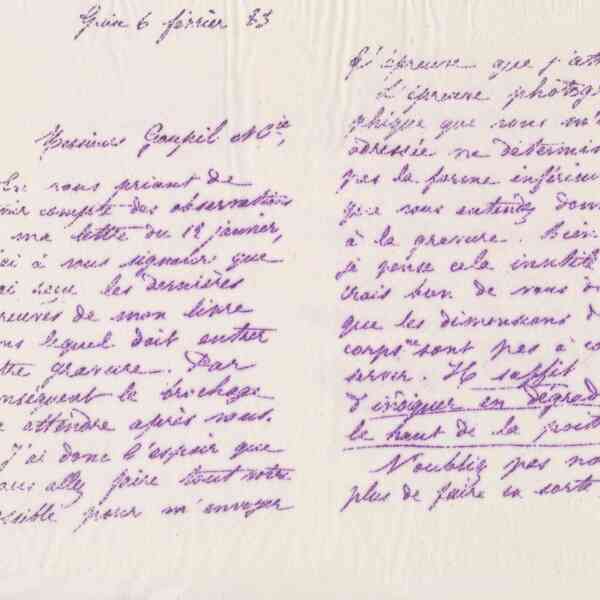 Guise 6 février 83
Messieurs Goupil & Cie,
En vous priant de
nir compte des observations
ma lettre du 12 janvier,
ci à vous signaler que
ai reçu les dernières
reuves de mon livre
ns lequel doit entrer
tre gravure. Par
nséquent le brochage
attendre après vous.
J'ai donc l'espoir que
ous allez faire tout votre
ossible pour m'envoyer
l'épreuve que j'att
L'épreuve photog
phique que vous m'
adressée ne détermin
pas la forme inférieu
que vous entendez don
à la gravure. Bien
je pense cela inutile
crois bon de vous d
que les dimensions d
corps sont pas à co
server. Il suffit
d'indiquer en dégrad
le haut de la poit
N'oubliez pas no
plus de faire en sorte